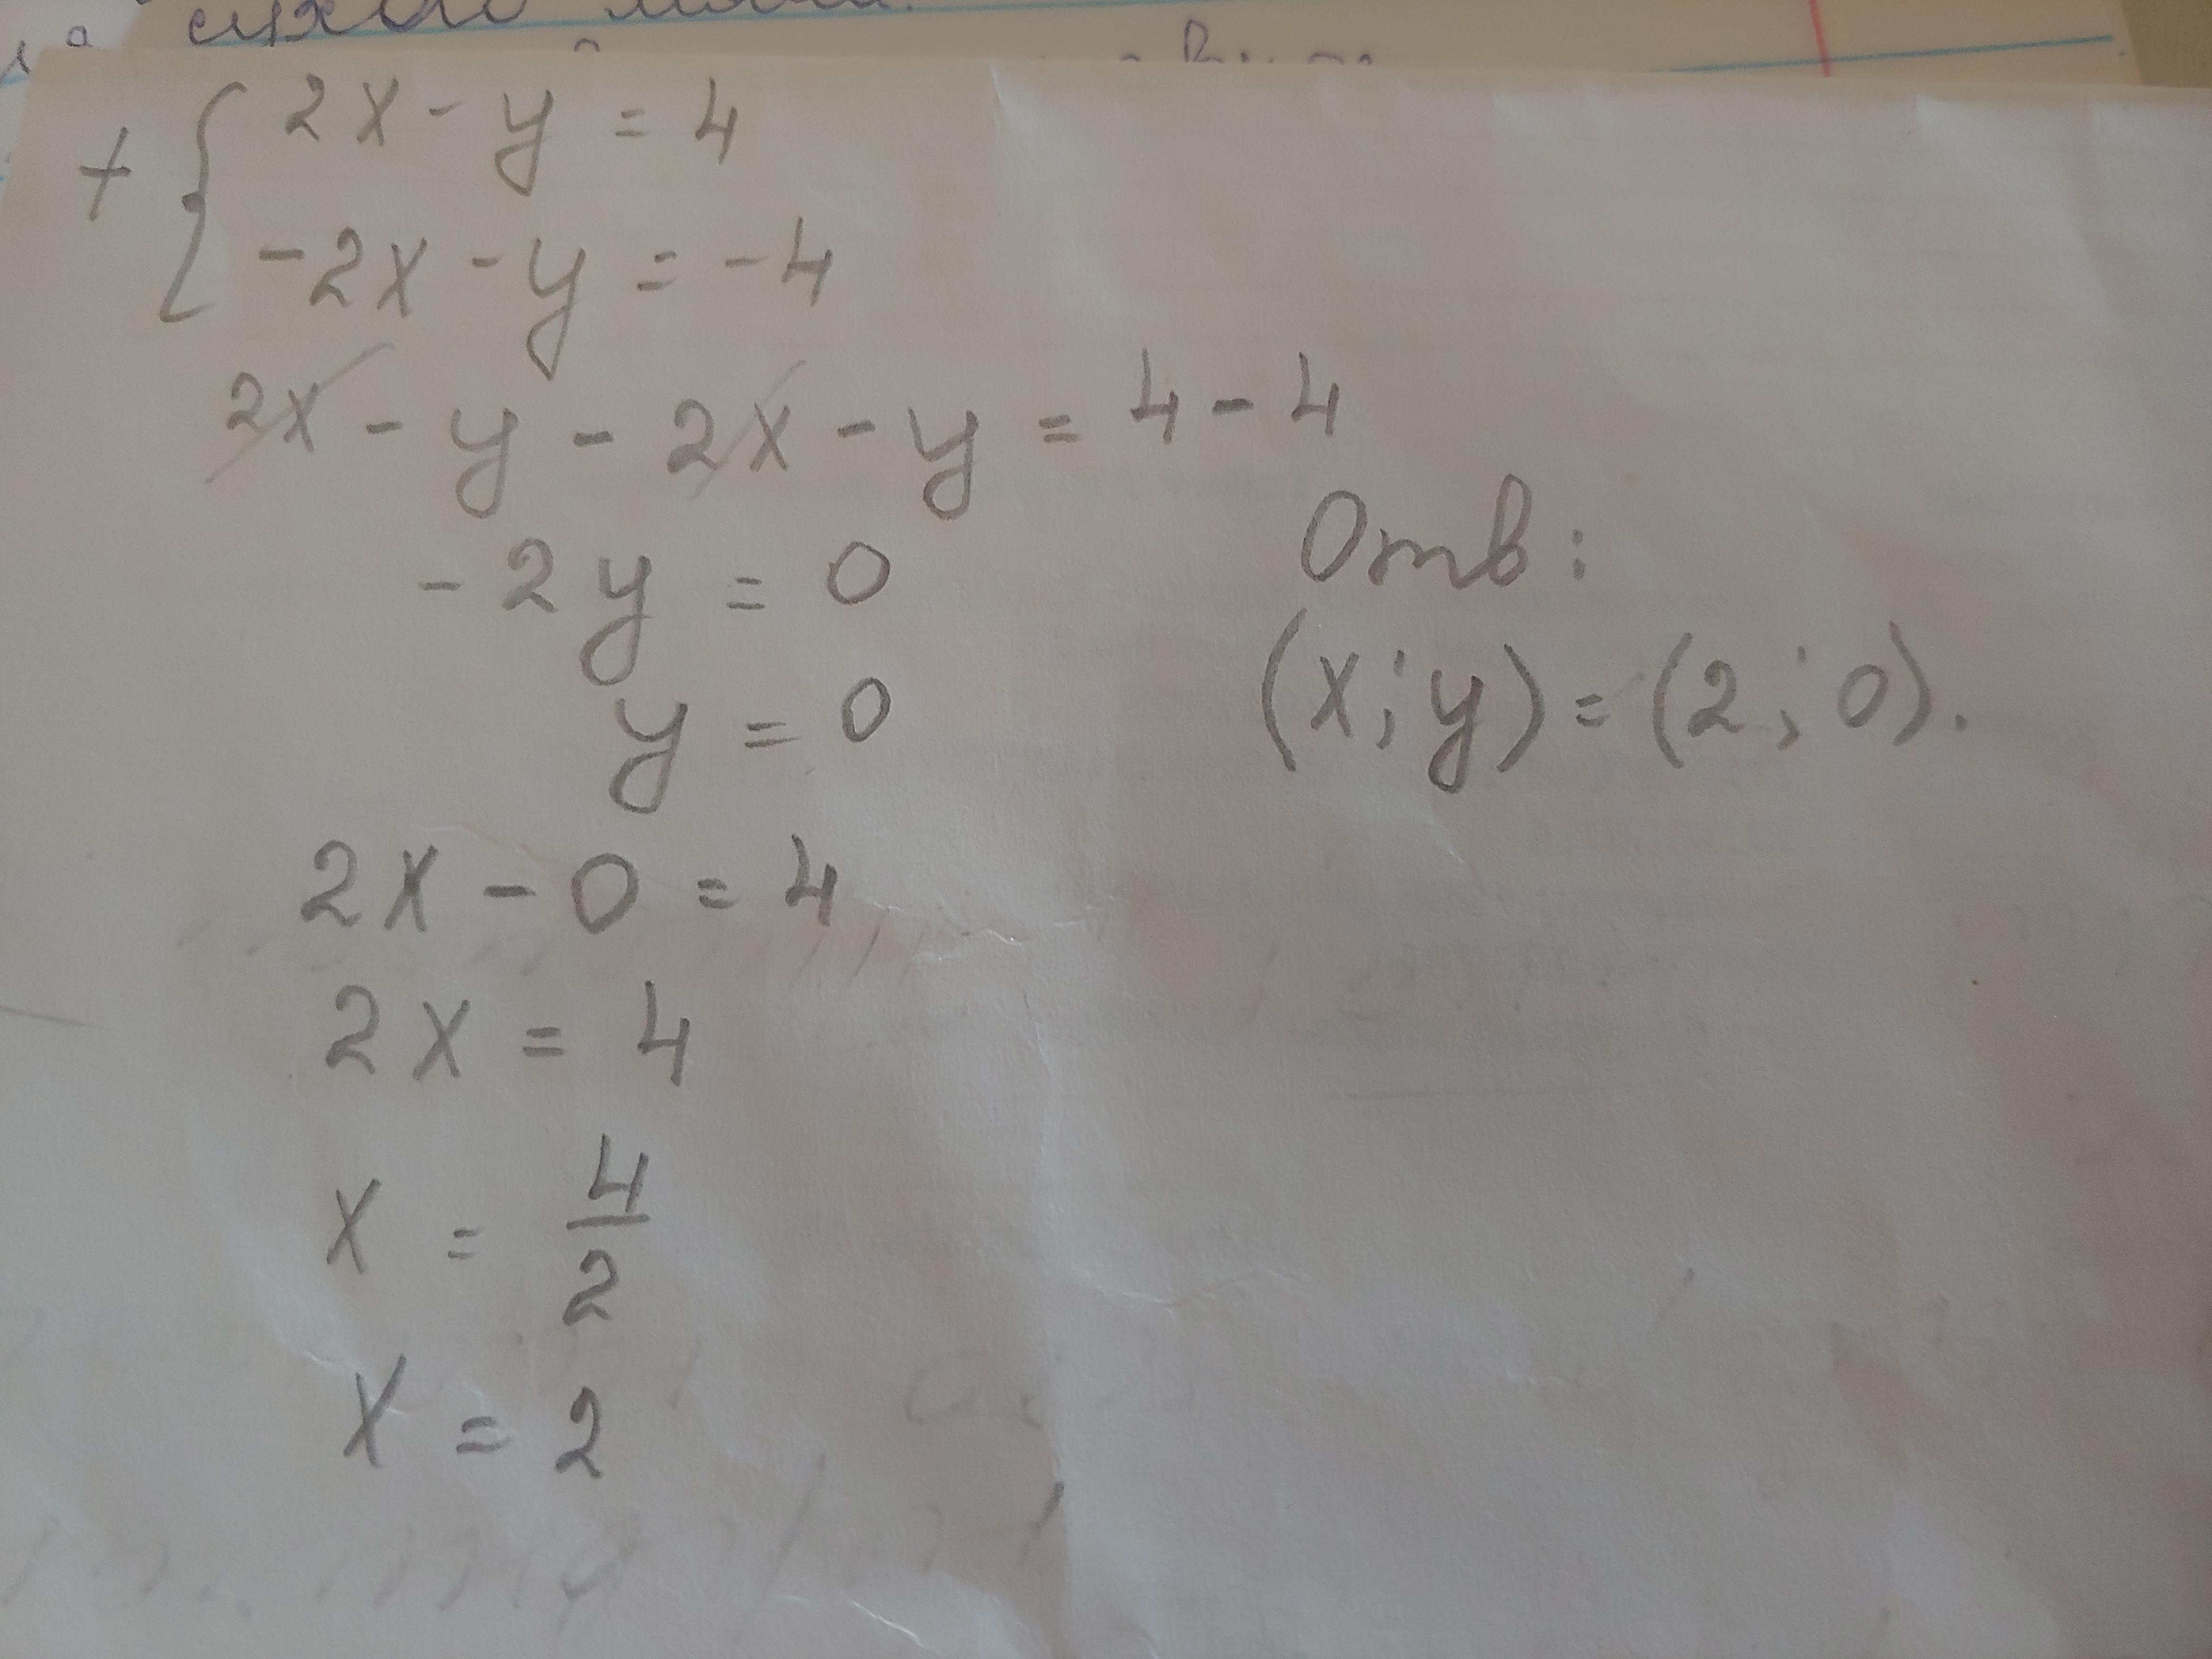 + { 2x - y = 4
-2x - y = -4
2x - y - 2x - y = 4 - 4
-2y = 0
y = 0
2x - 0 = 4
2x = 4
x = 4/2
x = 2
Отв:
(x; y) = (2; 0).